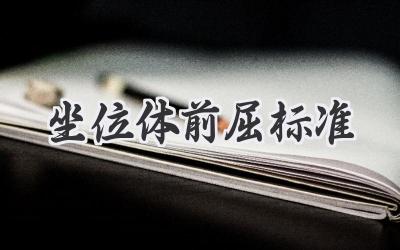 坐位体前屈标准